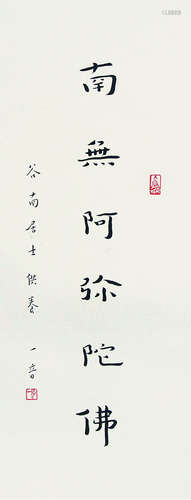 南無阿弥陀佛
谷南居士供养 一音